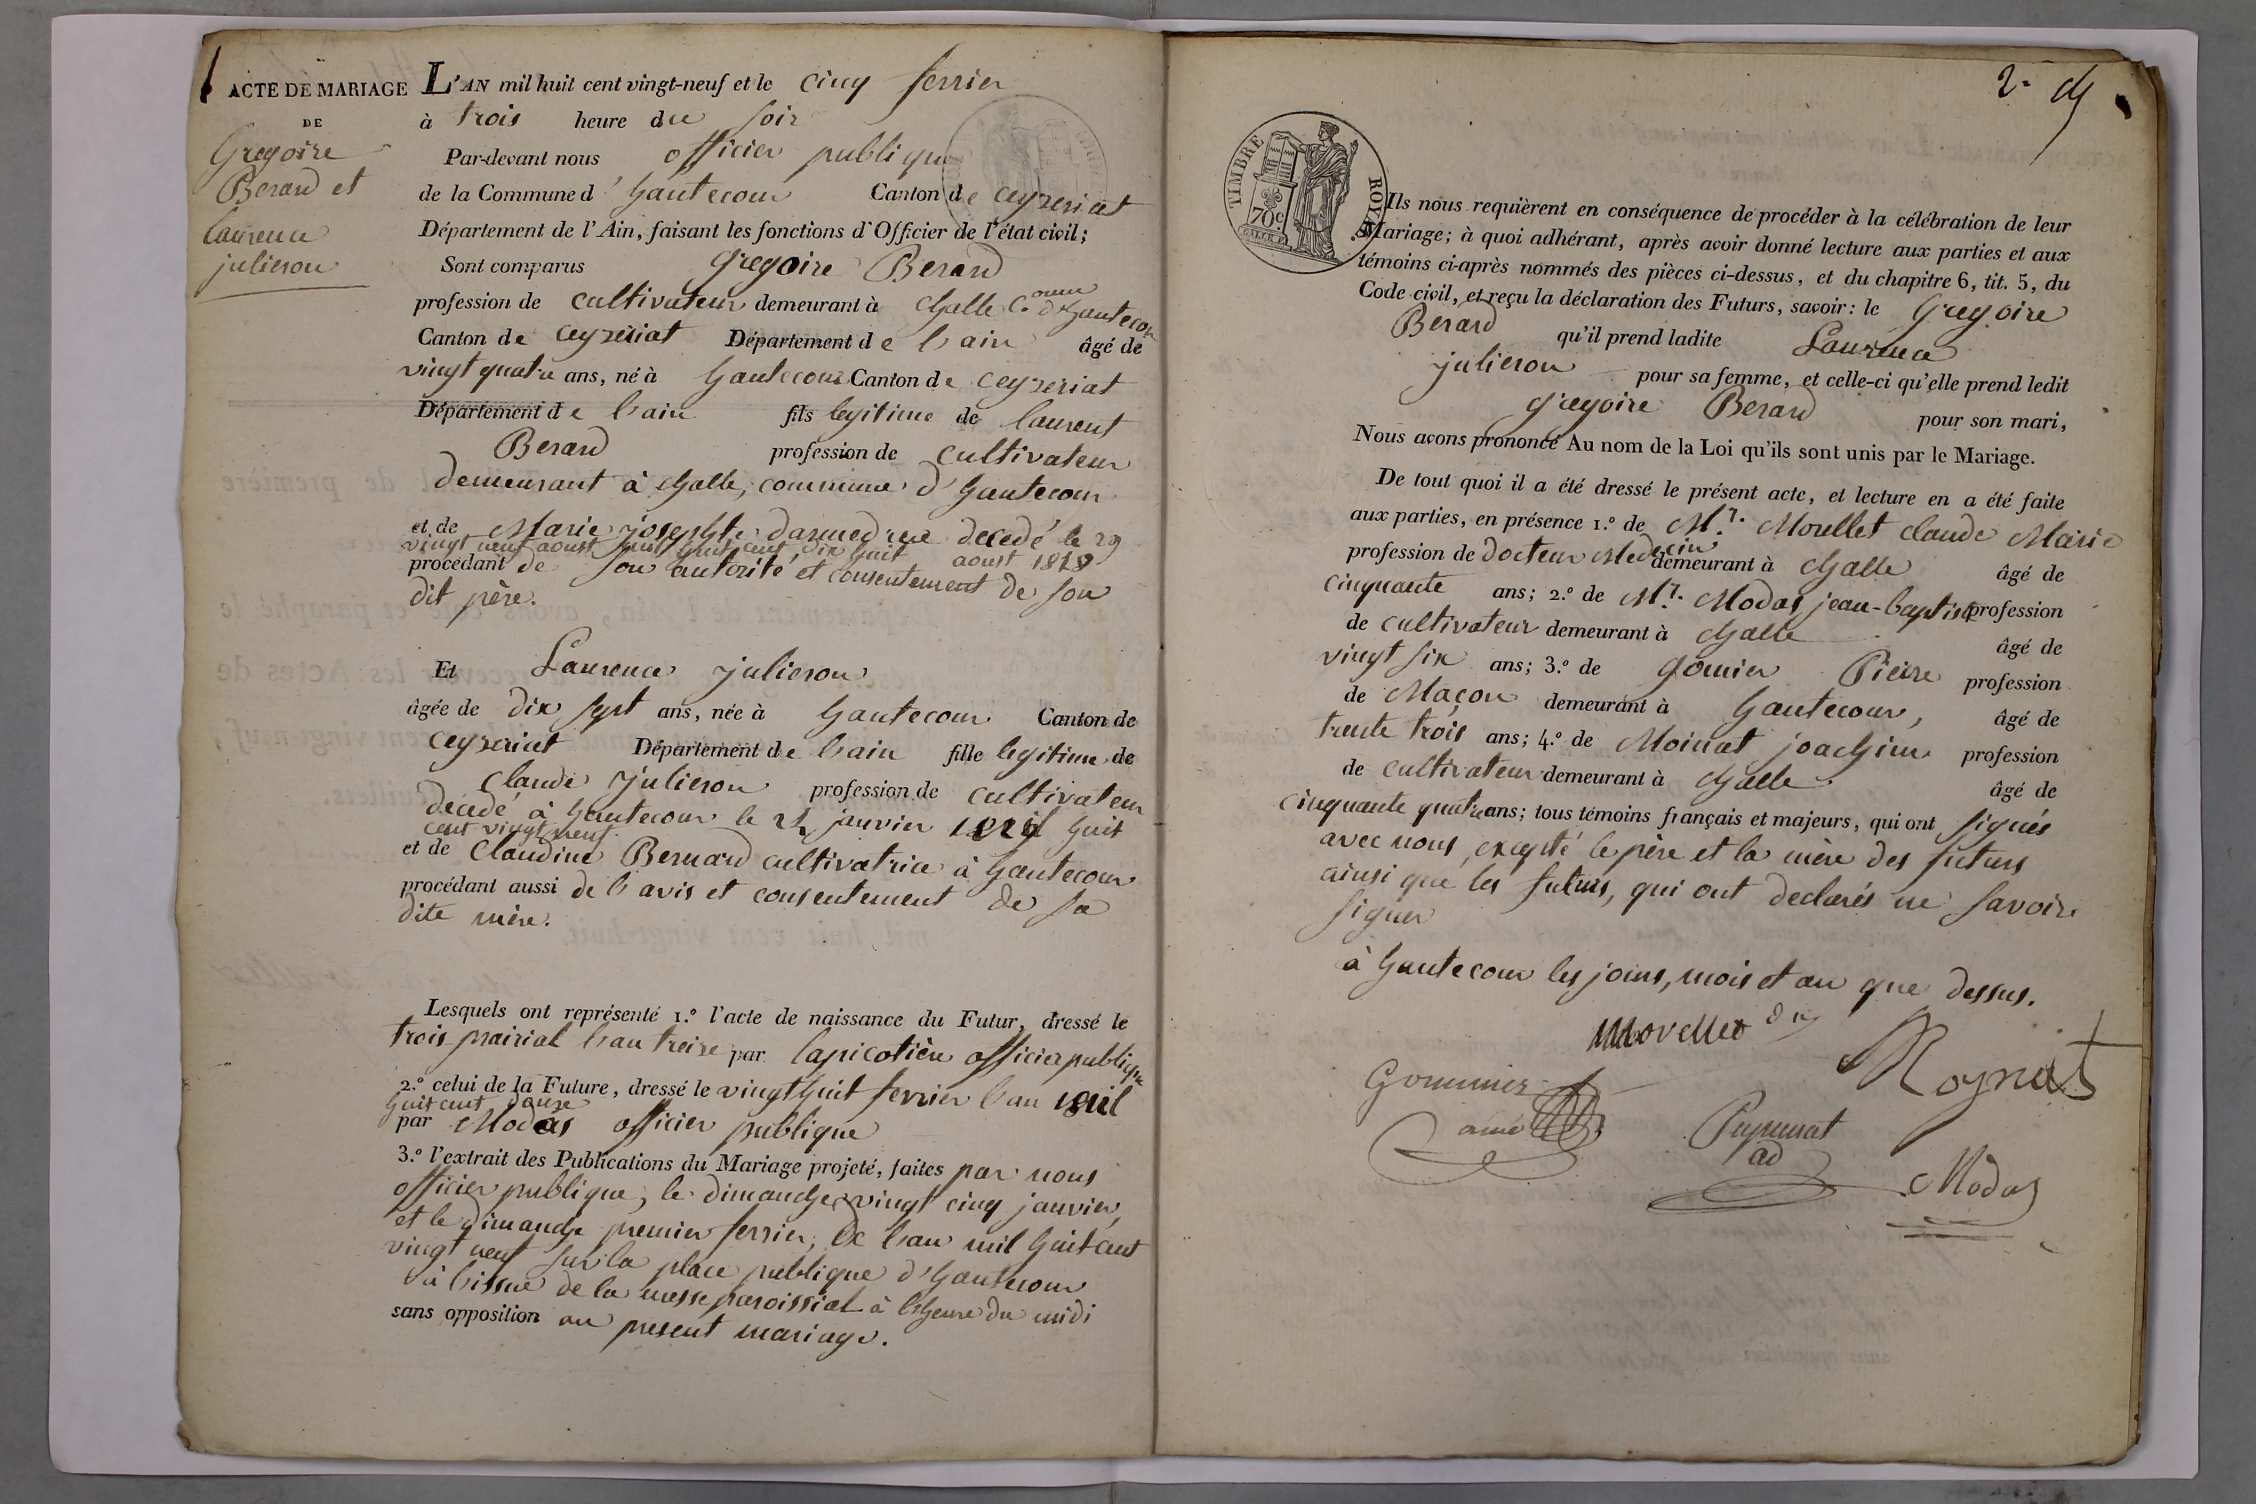 ACTE DE MARIAGE
DE
Gregoire
Berard et
Laurence
julieron
L'AN mil huit cent vingt-neuf et le cinq fevrier
à trois heure du soir
Par-devant nous officier publique
de la Commune d'hautecour Canton de ceyzeriat
Département de l'Ain, faisant les fonctions d'Officier de l'état civil;
Sont comparus Gregoire Berard
profession de cultivateur demeurant à challe C.omm d'hautecour
Canton de ceyzeriat Département de l'ain âgé de
vingt quatre ans, né à hautecour Canton de ceyzeriat
Département de l'ain fils legitime de laurent
Berard profession de cultivateur
demeurant à challe, commune d'hautecour
et de Marie josephte decedé le 29
vingt neuf aoust huit cent dix huit aoust
procédant de son autorité et consentement de son
dit père.
Et Laurence julieron
âgée de dix sept ans, née à hautecour Canton de
ceyzeriat Département de l'ain fille legitime de
claude julieron profession de cultivateur
decedé à hautecour le janvier huit
cent vingt neuf
et de claudine Bernard cultivatrice à hautecour
procédant aussi de l'avis et consentement de sa
dite mère.
Lesquels ont représenté 1.º l'acte de naissance du Futur, dressé le
trois prairial l'an treize par lapicotière officier publique
2.º celui de la Future, dressé le vingt huit fevrier l'an mil
huit cent douze
par Modas officier publique
3.º l'extrait des Publications du Mariage projeté, faites par nous
officier publique, le dimanche vingt cinq janvier,
et le dimanche premier fevrier, de l'an mil huit cent
vingt neuf sur la place publique d'hautecour
à l'issue de la messe paroissial à l'heure du midi
sans opposition au present mariage.
2.
TIMBRE ROYAL
70c
Ils nous requièrent en conséquence de procéder à la célébration de leur
Mariage; à quoi adhérant, après avoir donné lecture aux parties et aux
témoins ci-après nommés des pièces ci-dessus, et du chapitre 6, tit. 5, du
Code civil, et reçu la déclaration des Futurs, savoir: le Gregoire
Berard qu'il prend ladite Laurence
julieron pour sa femme, et celle-ci qu'elle prend ledit
gregoire Berard pour son mari,
Nous avons prononcé Au nom de la Loi qu'ils sont unis par le Mariage.
De tout quoi il a été dressé le présent acte, et lecture en a été faite
aux parties, en présence 1.º de Mr. Morellet claude Marie
profession de docteur Medecin demeurant à challe âgé de
cinquante ans; 2.º de Mr. Modas jean-baptiste profession
de cultivateur demeurant à challe âgé de
vingt six ans; 3.º de gomier Pierre profession
de Maçon demeurant à hautecour, âgé de
trente trois ans; 4.º de Moinat joachim profession
de cultivateur demeurant à challe âgé de
cinquante quatre ans; tous témoins français et majeurs, qui ont signés
avec nous, excepté le père et la mère des futurs
ainsi que les futurs, qui ont declarés ne savoire
signer
à hautecour les jours, mois et an que dessus.
Morellet
Rognat
Gommier
ainé
ad
Modas